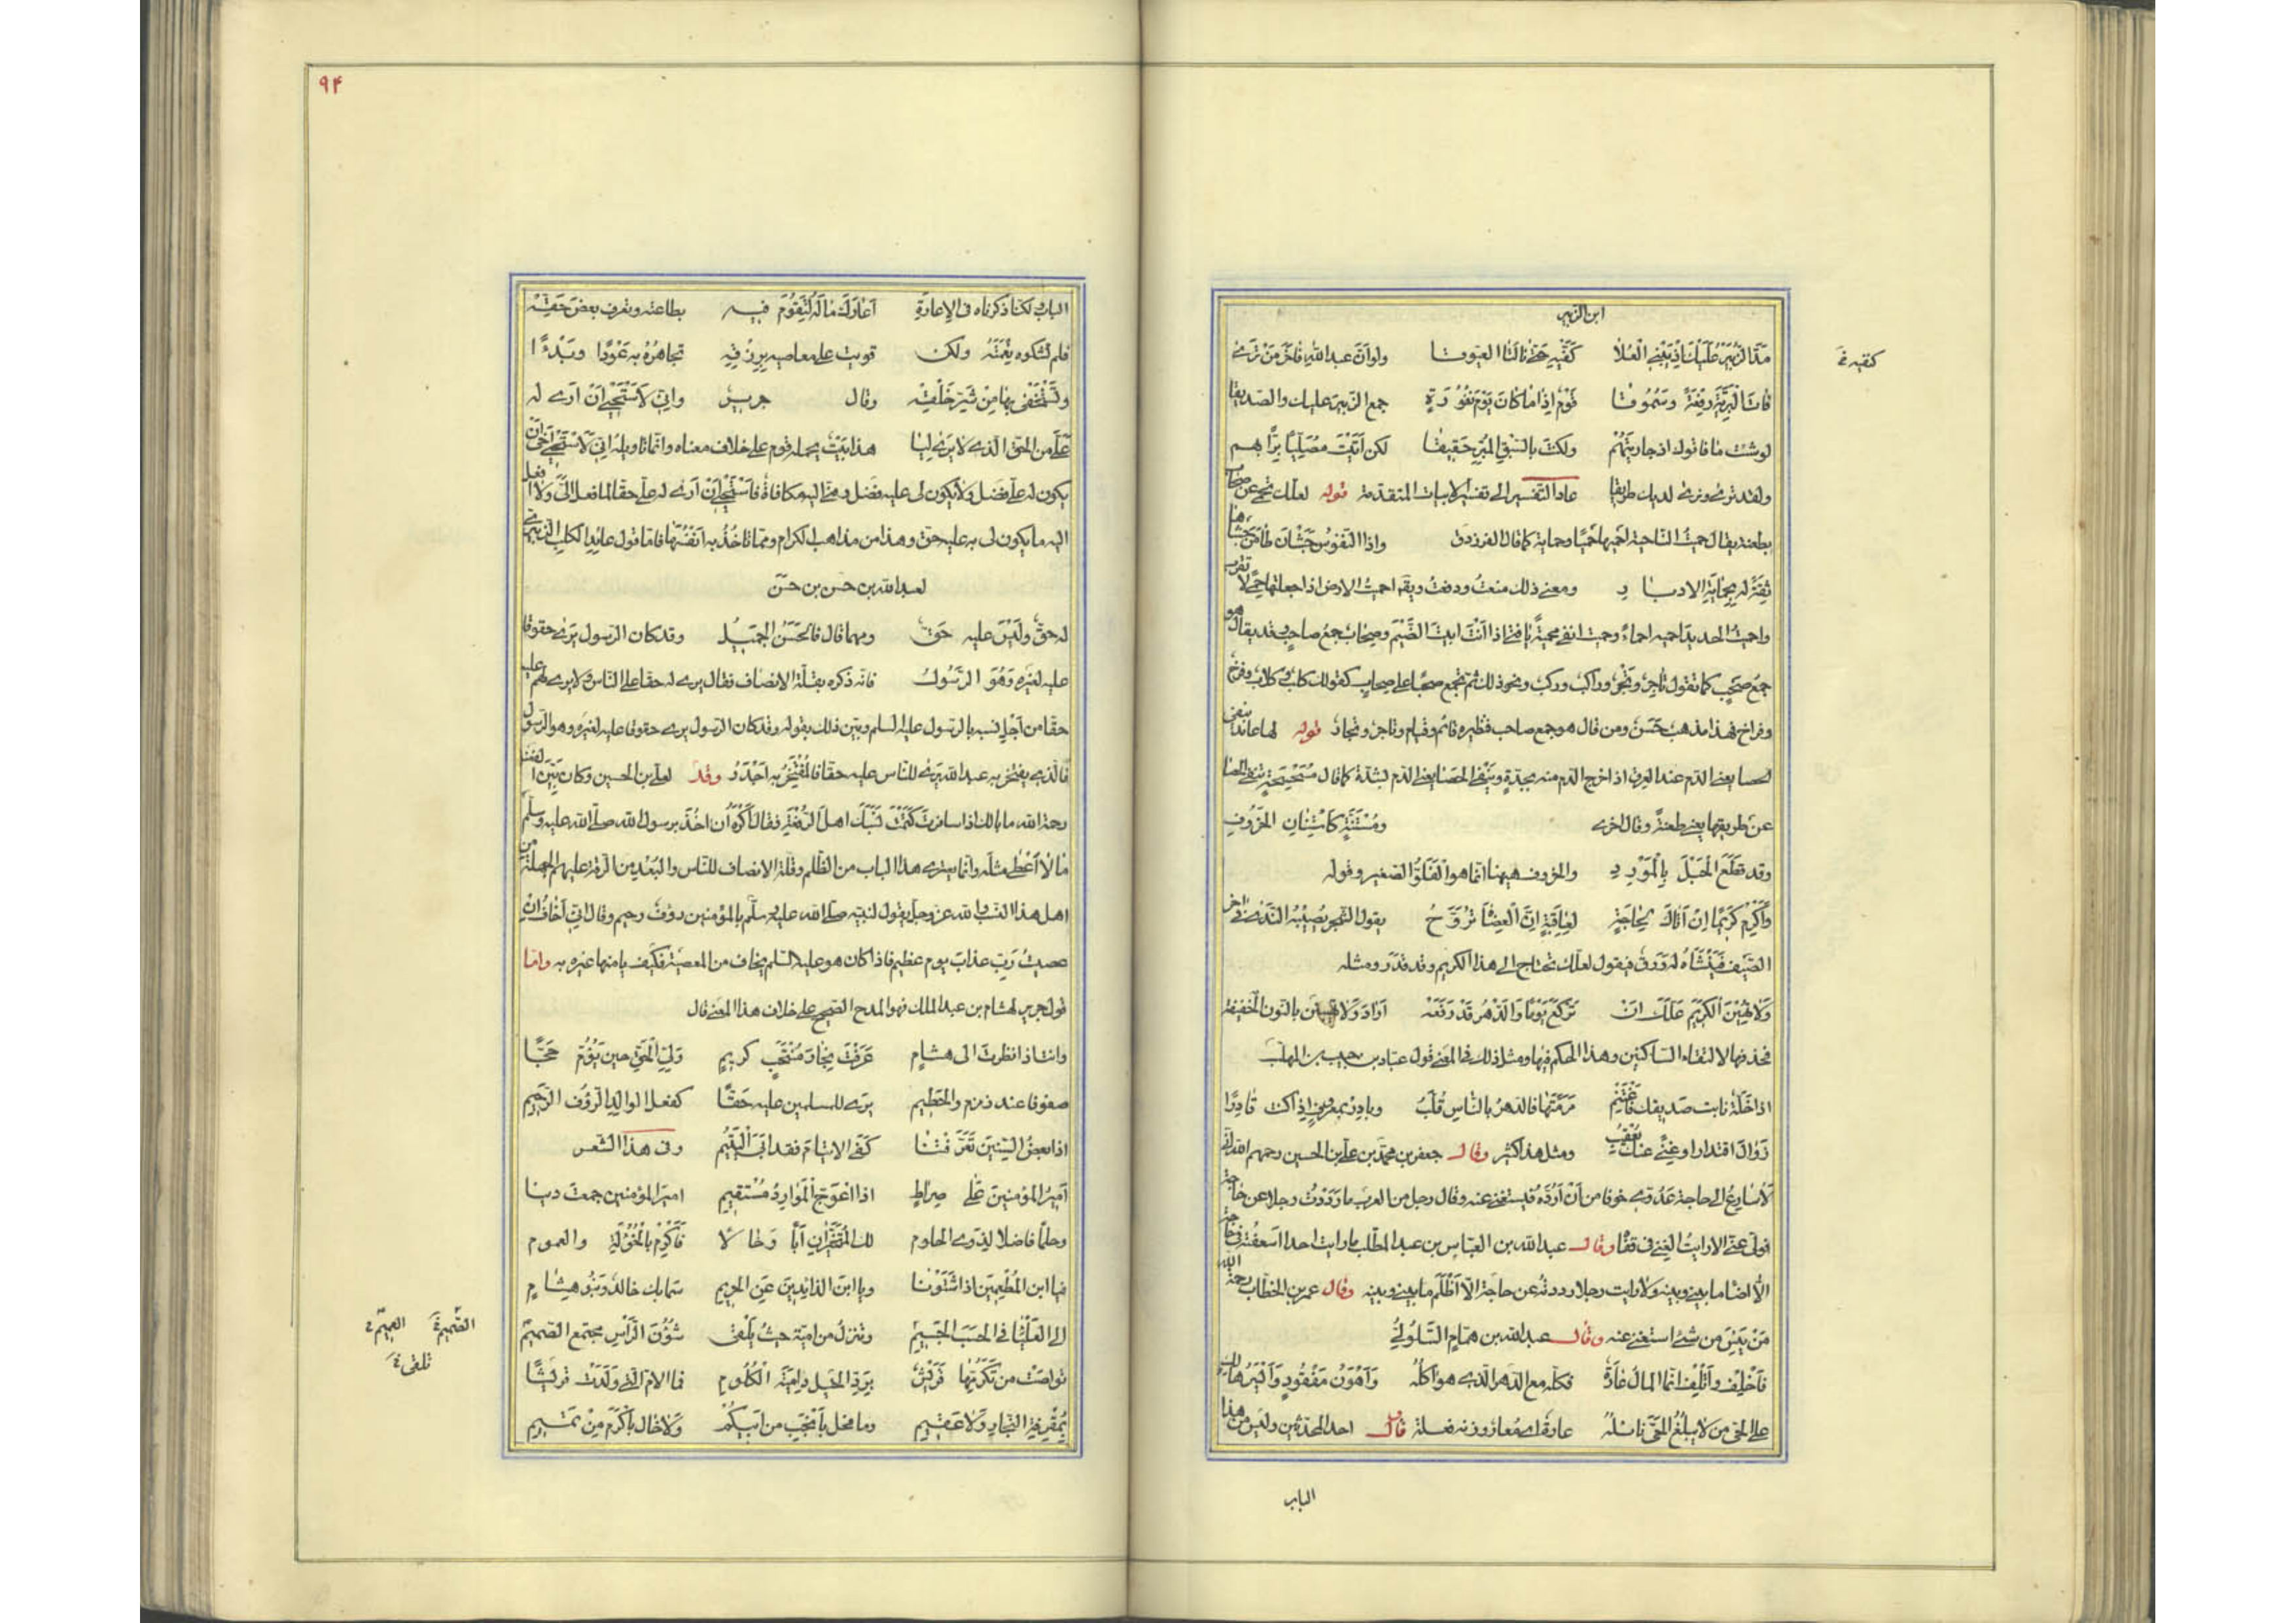 ابن الزبير
مدّ الزبير عليك اذ يبنى العُلا كنفيه حتى نالتا العيوقا ولو ان عبد الله فاخر من ترى
فات البرية رفعة وسموقا قوم اذا ما كان يوم نفورة جمع الزبير عليك والصديقا
لو شئت ما فاتوك اذ جاريتهم ولكنت بالسبق المبر حقيقا لكن اتيت مصليا برا بهم
ولقد ترى ونرى لديك طريقا عاد التفسير الى تفسير الابيات المتقدمة قوله لعلك تحمى عن صحاب
بطعنة يقال حميت الناحية احميها حميا وحماية كما قال الفرزدق واذا النفوس جشان طامن جاشها
ثقة له بحماية الادبار ومعنى ذلك منعت ودفعت ويقال احميت الارض اذا جعلتها حمى لا تقرب
واحميت الحديد احميه احماء وحميت انفى محمية يا فتى اذا انت ابيت الضيم وصحاب جمع صاحب وقد يقال هو
جمع صحب كما تقول تاجر وتجر وراكب وركب ونحو ذلك ثم تجمع صحبا على صحاب كقولك كلب وكلاب وفرخ
وفراخ فهذا مذهب حسن ومن قال هو جمع صاحب فنظيره قائم وقيام وتاجر وتجار قوله لها عاند ينفى
الحصا يعنى الدم عند العرق اذا خرج الدم منه بحدة وينفى الحصا يعنى الدم لشدة كما قال مسحسحة تنفى الحصا
عن طريقها يعنى طعنة وقال اخر ومستنة كاستنان الخروف
وقد قطع الحبل بالمرود والخروف ههنا انما هو الفلو الصغير وقوله
واكرم كريما ان اتاك لحاجة لعاقبة ان العضاه تروح يقول الشجر يصيبه الندى فى اخر
الصيف فينشأ له ورق فيقول لعلك تحتاج الى هذا الكريم وقد قدر ومثله
ولا تهين الكريم علك ان تركع يوما والدهر قد رفعه اراد ولا تهينن بالنون الخفيفة
فحذفها لالتقاء الساكنين وهذا الحكم فيها ومثل ذلك فى المعنى قول عباد بن حبيب بن المهلب
اذا خلة نابت صديقك فاغتنم مرمتها فالدهر بالناس قلب وبادر بمعروف اذا كنت قادرا
زوال اقتدار او غنى عنك يعقب ومثل هذا كثير وقال جعفر بن محمد بن على بن الحسين رحمهم الله انى
لاسارع الى حاجة عدوى خوفا من ان ارده فيستغنى عنى وقال رجل من العرب ما رددت رجلا عن حاجة
فولى عنى الا رايت الغنى فى قفاه وقال عبد الله بن العباس بن عبد المطلب ما رايت احدا اسعفته فى حاجة
الا اضاء ما بينى وبينه ولا رايت رجلا رددته عن حاجة الا اظلم ما بينى وبينه وقال عمر بن الخطاب رحمه الله
من يئس من شئ استغنى عنه وقال عبد الله بن همام السلولى
فاخلف واتلف انما المال عارة فكله مع الدهر الذى هو اكله واهون مفقود وايسر هالك
على الحى من لا يبلغ الحى نائله عارة اى معار ووزنه فعلة قال احد المحدثين وليس من هذا
الباب
كنفيه خ
٩۴
الباب لكنا ذكرناه فى الاعارة اعارك ماله لتقوم فيه بطاعته وتعرف بعض حقه
فلم تشكره نعمته ولكن قويت على معاصيه برزقه تجاهره به عودا وبدءا
وتستخفى بها من شر خلقه وقال جرير وانى لاستحيى اخى ان ارى له
على من الحق الذى لا يرى ليا هذا بيت يحمله قوم على خلاف معناه وانما تاويله انى لاستحيى اخى ان
يكون له على فضل ولا يكون لى عليه فضل ومنى اليه مكافاة فاستحيى ان ارى له على حقا لما فعل الى ولا افعل
اليه ما يكون لى به عليه حق وهذا من مذاهب الكرام ومما تاخذ به انفسها فاما قول عائد الكلب الزبيرى
لعبد الله بن حسن بن حسن
له حق وليس عليه حق ومهما قال فالحسن الجميل وقد كان الرسول يرى حقوقا
عليه لغيره وهو الرسول فانه ذكره بقلة الانصاف فقال يرى له حقا على الناس ولا يرى لهم عليه
حقا من اجل نسبه بالرسول عليه السلم وبين ذلك بقوله وقد كان الرسول يرى حقوقا عليه لغيره وهو الرسول
فالذى يفتخر به عبد الله يرى للناس عليه حقا فالمفتخر به اجدر وقد لعلى بن الحسين وكان بين الفضل
رحمه الله ما بالك اذا سافرت كتمت نسبك اهل الرفقة فقال اكره ان اخذ برسول الله صلى الله عليه وسلم
ما لا اعطى مثله وانما يعترى هذا الباب من الظلم وقلة الانصاف للناس والبعد من الرقة عليهم الجهلة من
اهل هذا النسب والله عز وجل يقول لنبيه صلى الله عليه وسلم بالمؤمنين رؤف رحيم وقال انى اخاف ان
عصيت ربى عذاب يوم عظيم فاذا كان هو عليه السلم يخاف من المعصية فكيف يامنها غيره به واما
قول جرير لهشام بن عبد الملك فهو المدح الصحيح على خلاف هذا المعنى قال
وانت اذا نظرت الى هشام عرفت نجار منتجب كريم ولى الحق حين يؤم حجا
صفوفا عند زمزم والحطيم يرى للمسلمين عليه حقا كفعل الوالد الرؤف الرحيم
اذا بعض السنين تعرقتنا كفى الايتام فقد ابى اليتيم وفى هذا الشعر
امير المؤمنين على صراط اذا اعوج الموارد مستقيم امير المؤمنين جمعت دينا
وحلما فاضلا لذوى الحلوم لك المتخيران ابا وخالا فاكرم بالخؤلة والعموم
فيا ابن المطعمين اذا شتونا ويا ابن الذائدين عن الحريم سما بك خالد وبنو هشام
الى العلياء فى الحسب الجسيم وتنزل من امية حيث يلقى شؤن الراس مجتمع الصميم
تواصت من تكرمها قريش برد الخيل دامية الكلوم فما الام التى ولدت قريشا
بمقرفة النجار ولا عقيم وما فحل بانجب من ابيكم ولا خال باكرم من تميم
الصميم خ العميم خ
تلقى خ